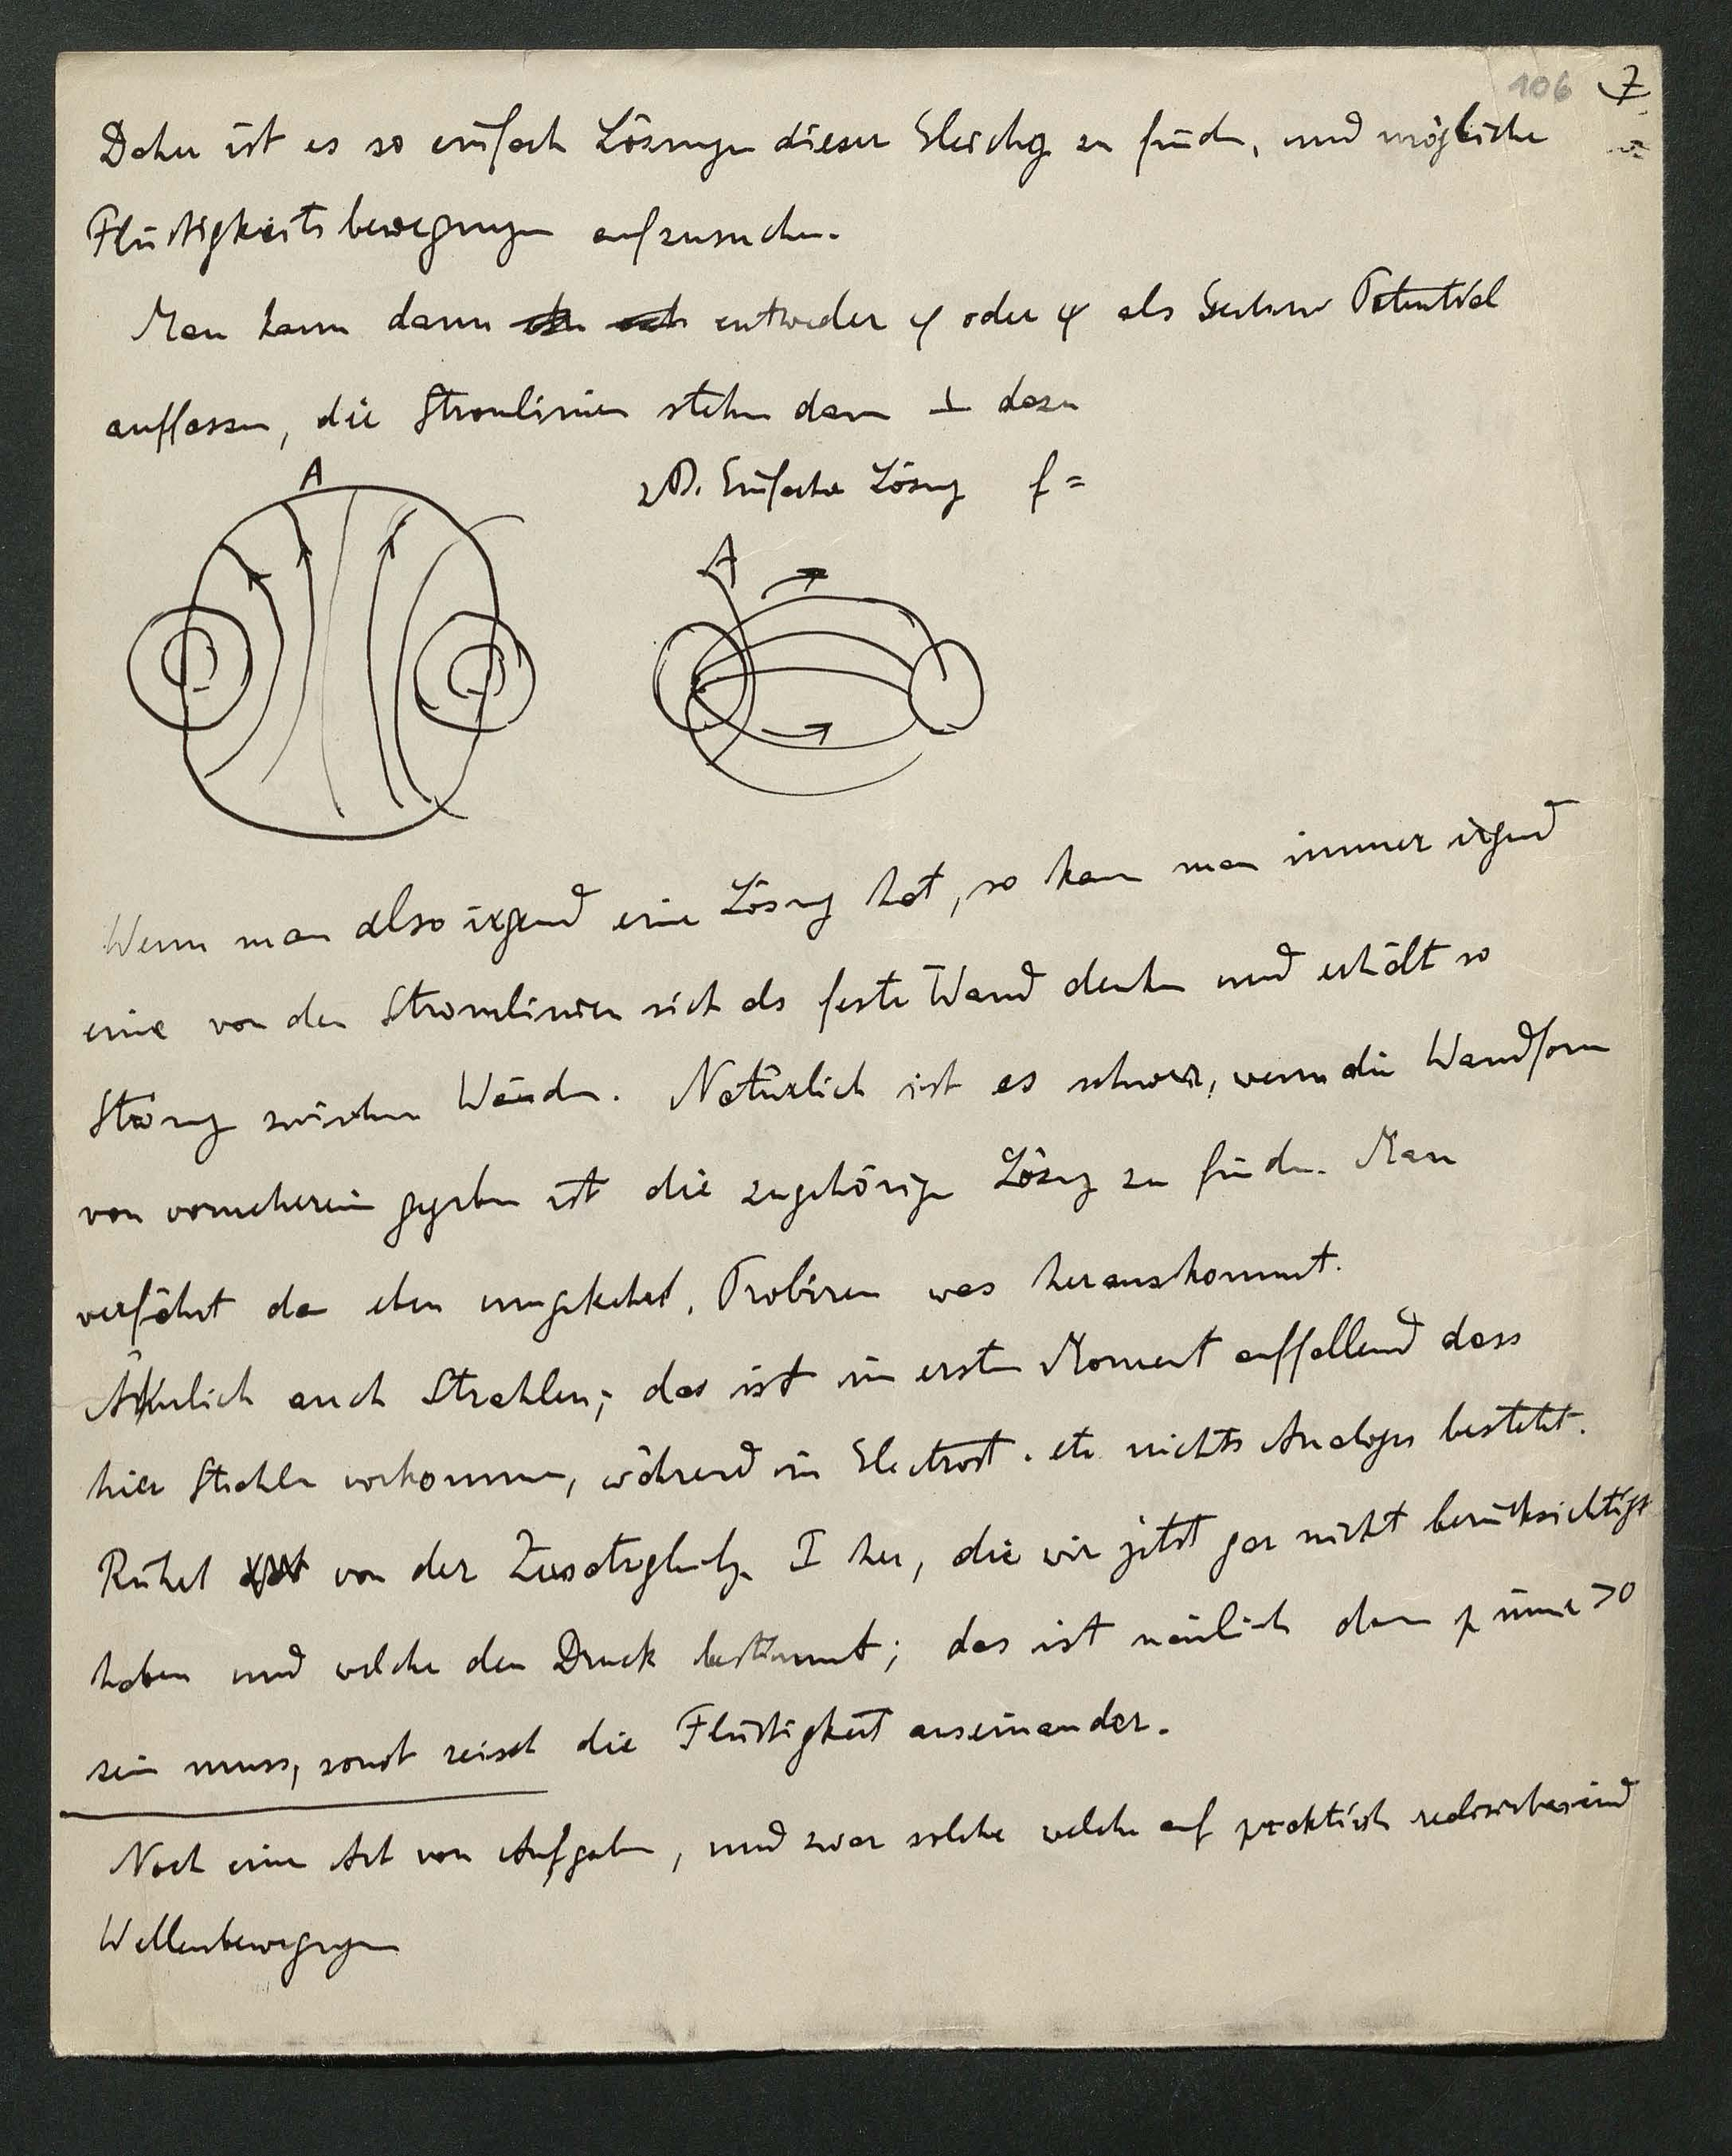 106 7
Daher ist es so einfach Lösungen dieser Gleichg zu finden, und mögliche
Flüssigkeitsbewegungen aufzusuchen.
Man kann dann entweder φ oder ψ als Potential
auffassen, die Stromlinien stehen dann ⊥ dazu
A
z.B. Einfache Lösung f =
A
Wenn man also irgend eine Lösung hat, so kann man immer irgend
eine von den Stromlinien sich als feste Wand denken und erhält so
Strömung zwischen Wänden. Natürlich ist es schwer, wenn die Wandform
von vorneherein gegeben ist die zugehörige Lösung zu finden. Man
verfährt da eben umgekehrt. Probiren was herauskommt.
Ähnlich auch Strahlen; das ist im ersten Moment auffallend dass
hier Strahlen vorkommen, während in Electrost. etc nichts Analoges besteht.
Rührt von der Zusatzgleichg. I her, die wir jetzt gar nicht berücksichtigt
haben und welche den Druck bestimmt; das ist nämlich dann p immer >0
sein muss, sonst reisst die Flüssigkeit auseinander.
Noch eine Art von Aufgaben, und zwar solche welche auf praktisch realisirbar sind
Wellenbewegungen